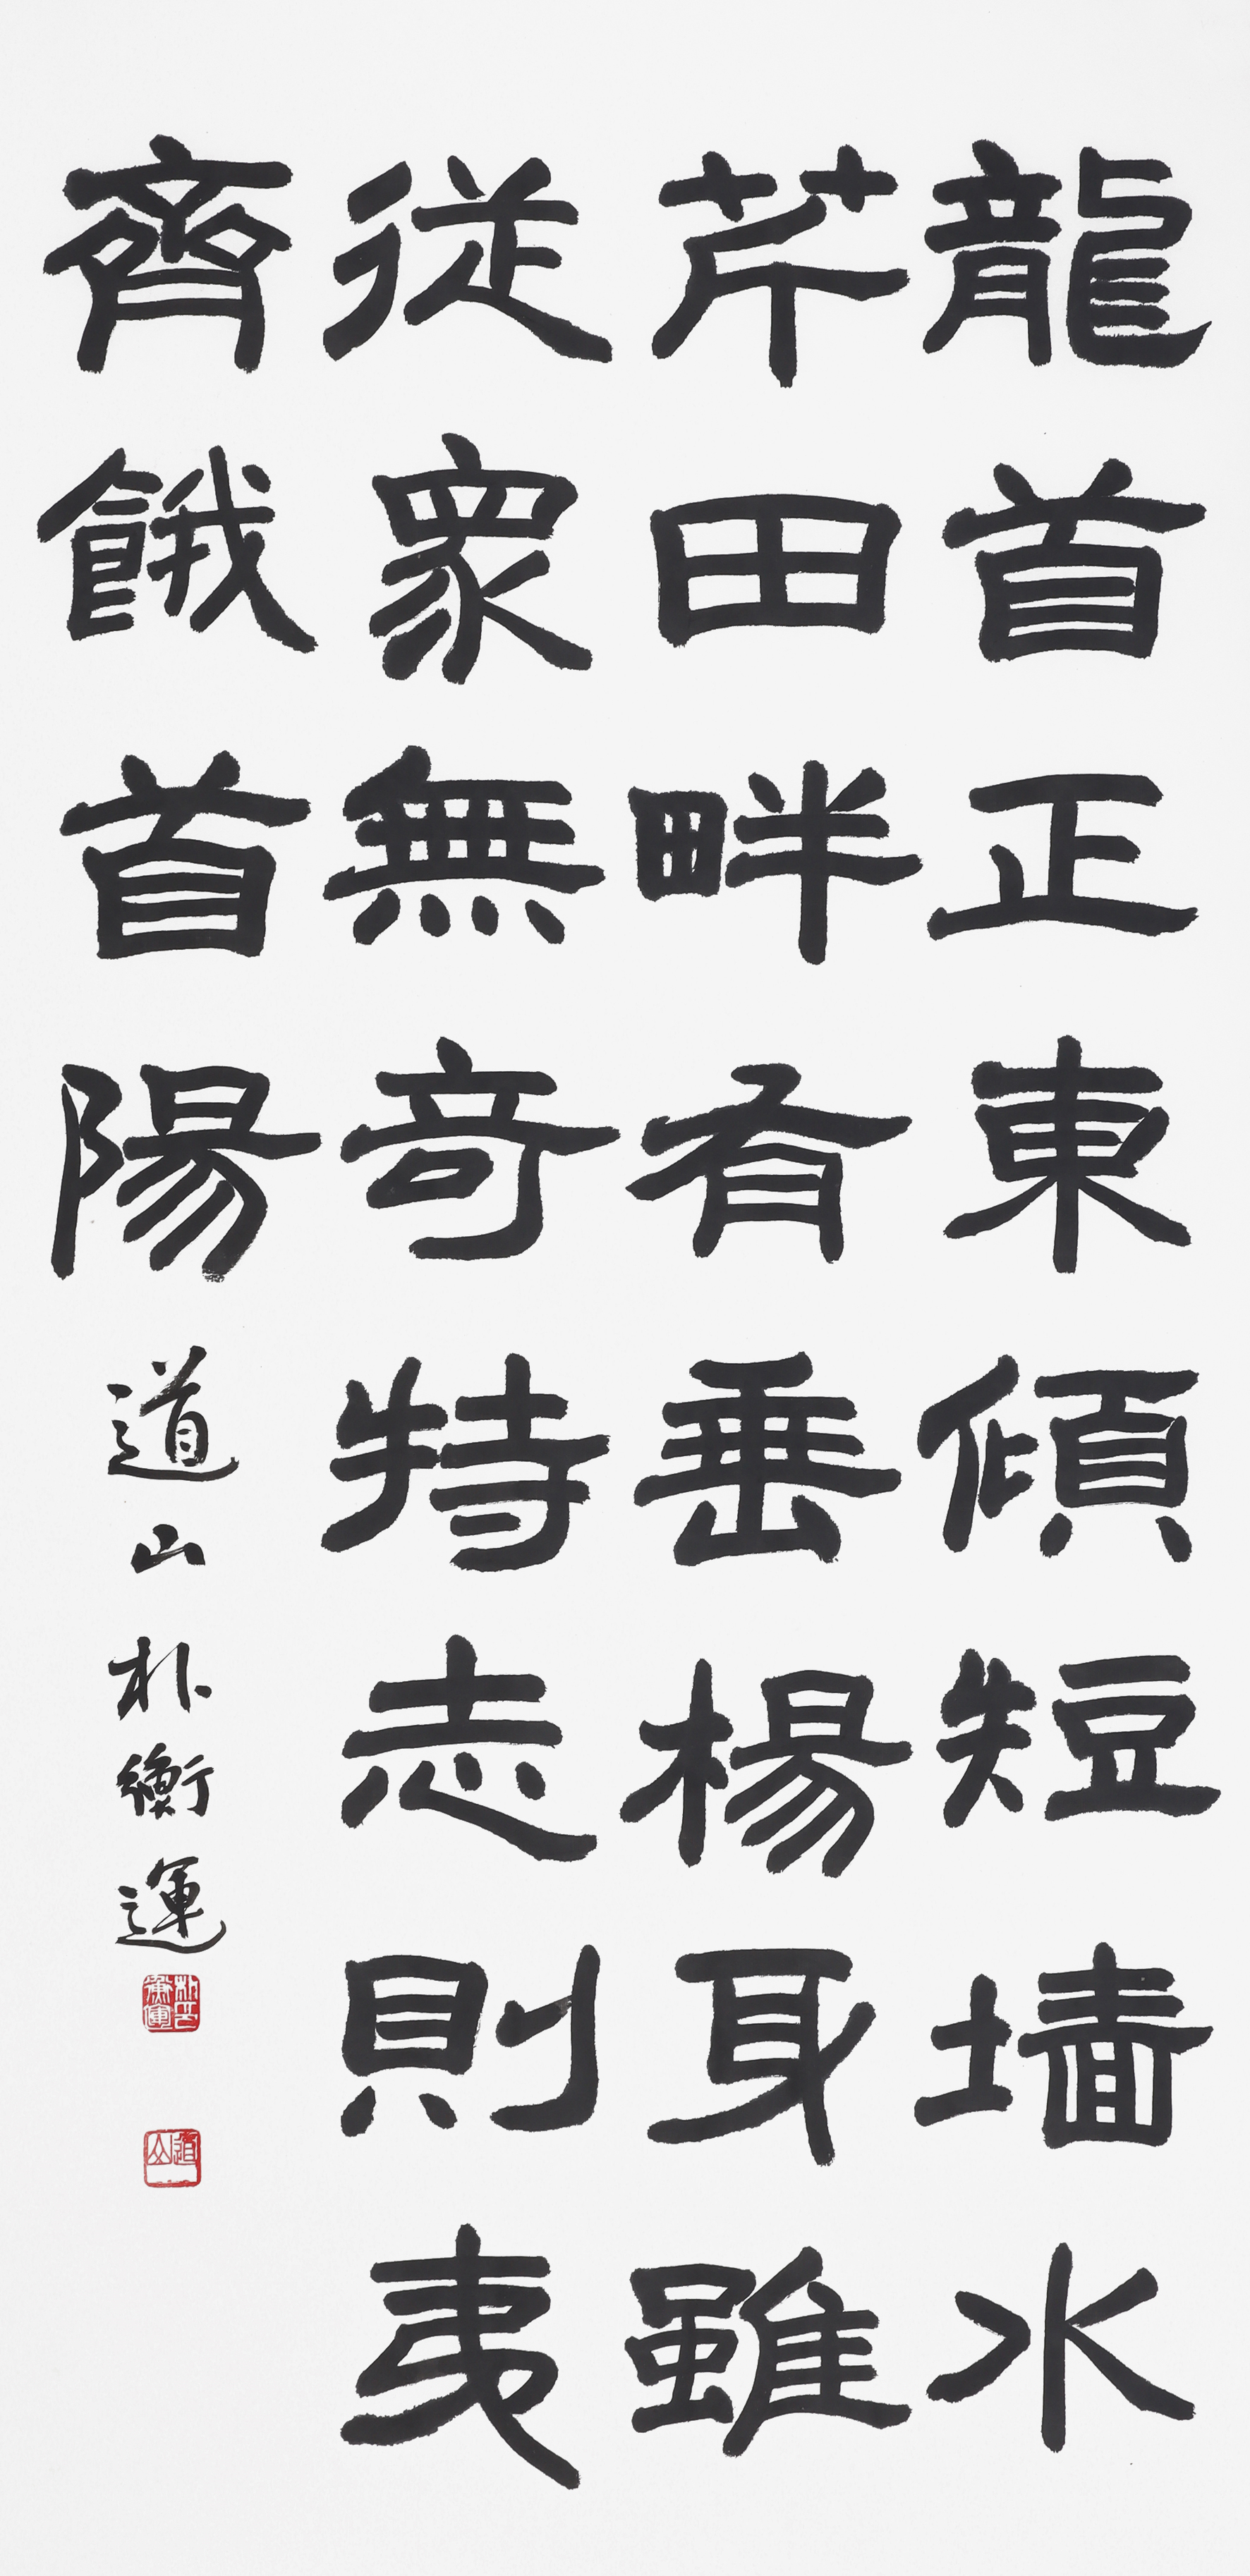 龍首正東傾短墻水
芹田畔有垂楊身雖
従衆無奇特志則夷
齊餓首陽 道山朴衡運
朴衡運
道山